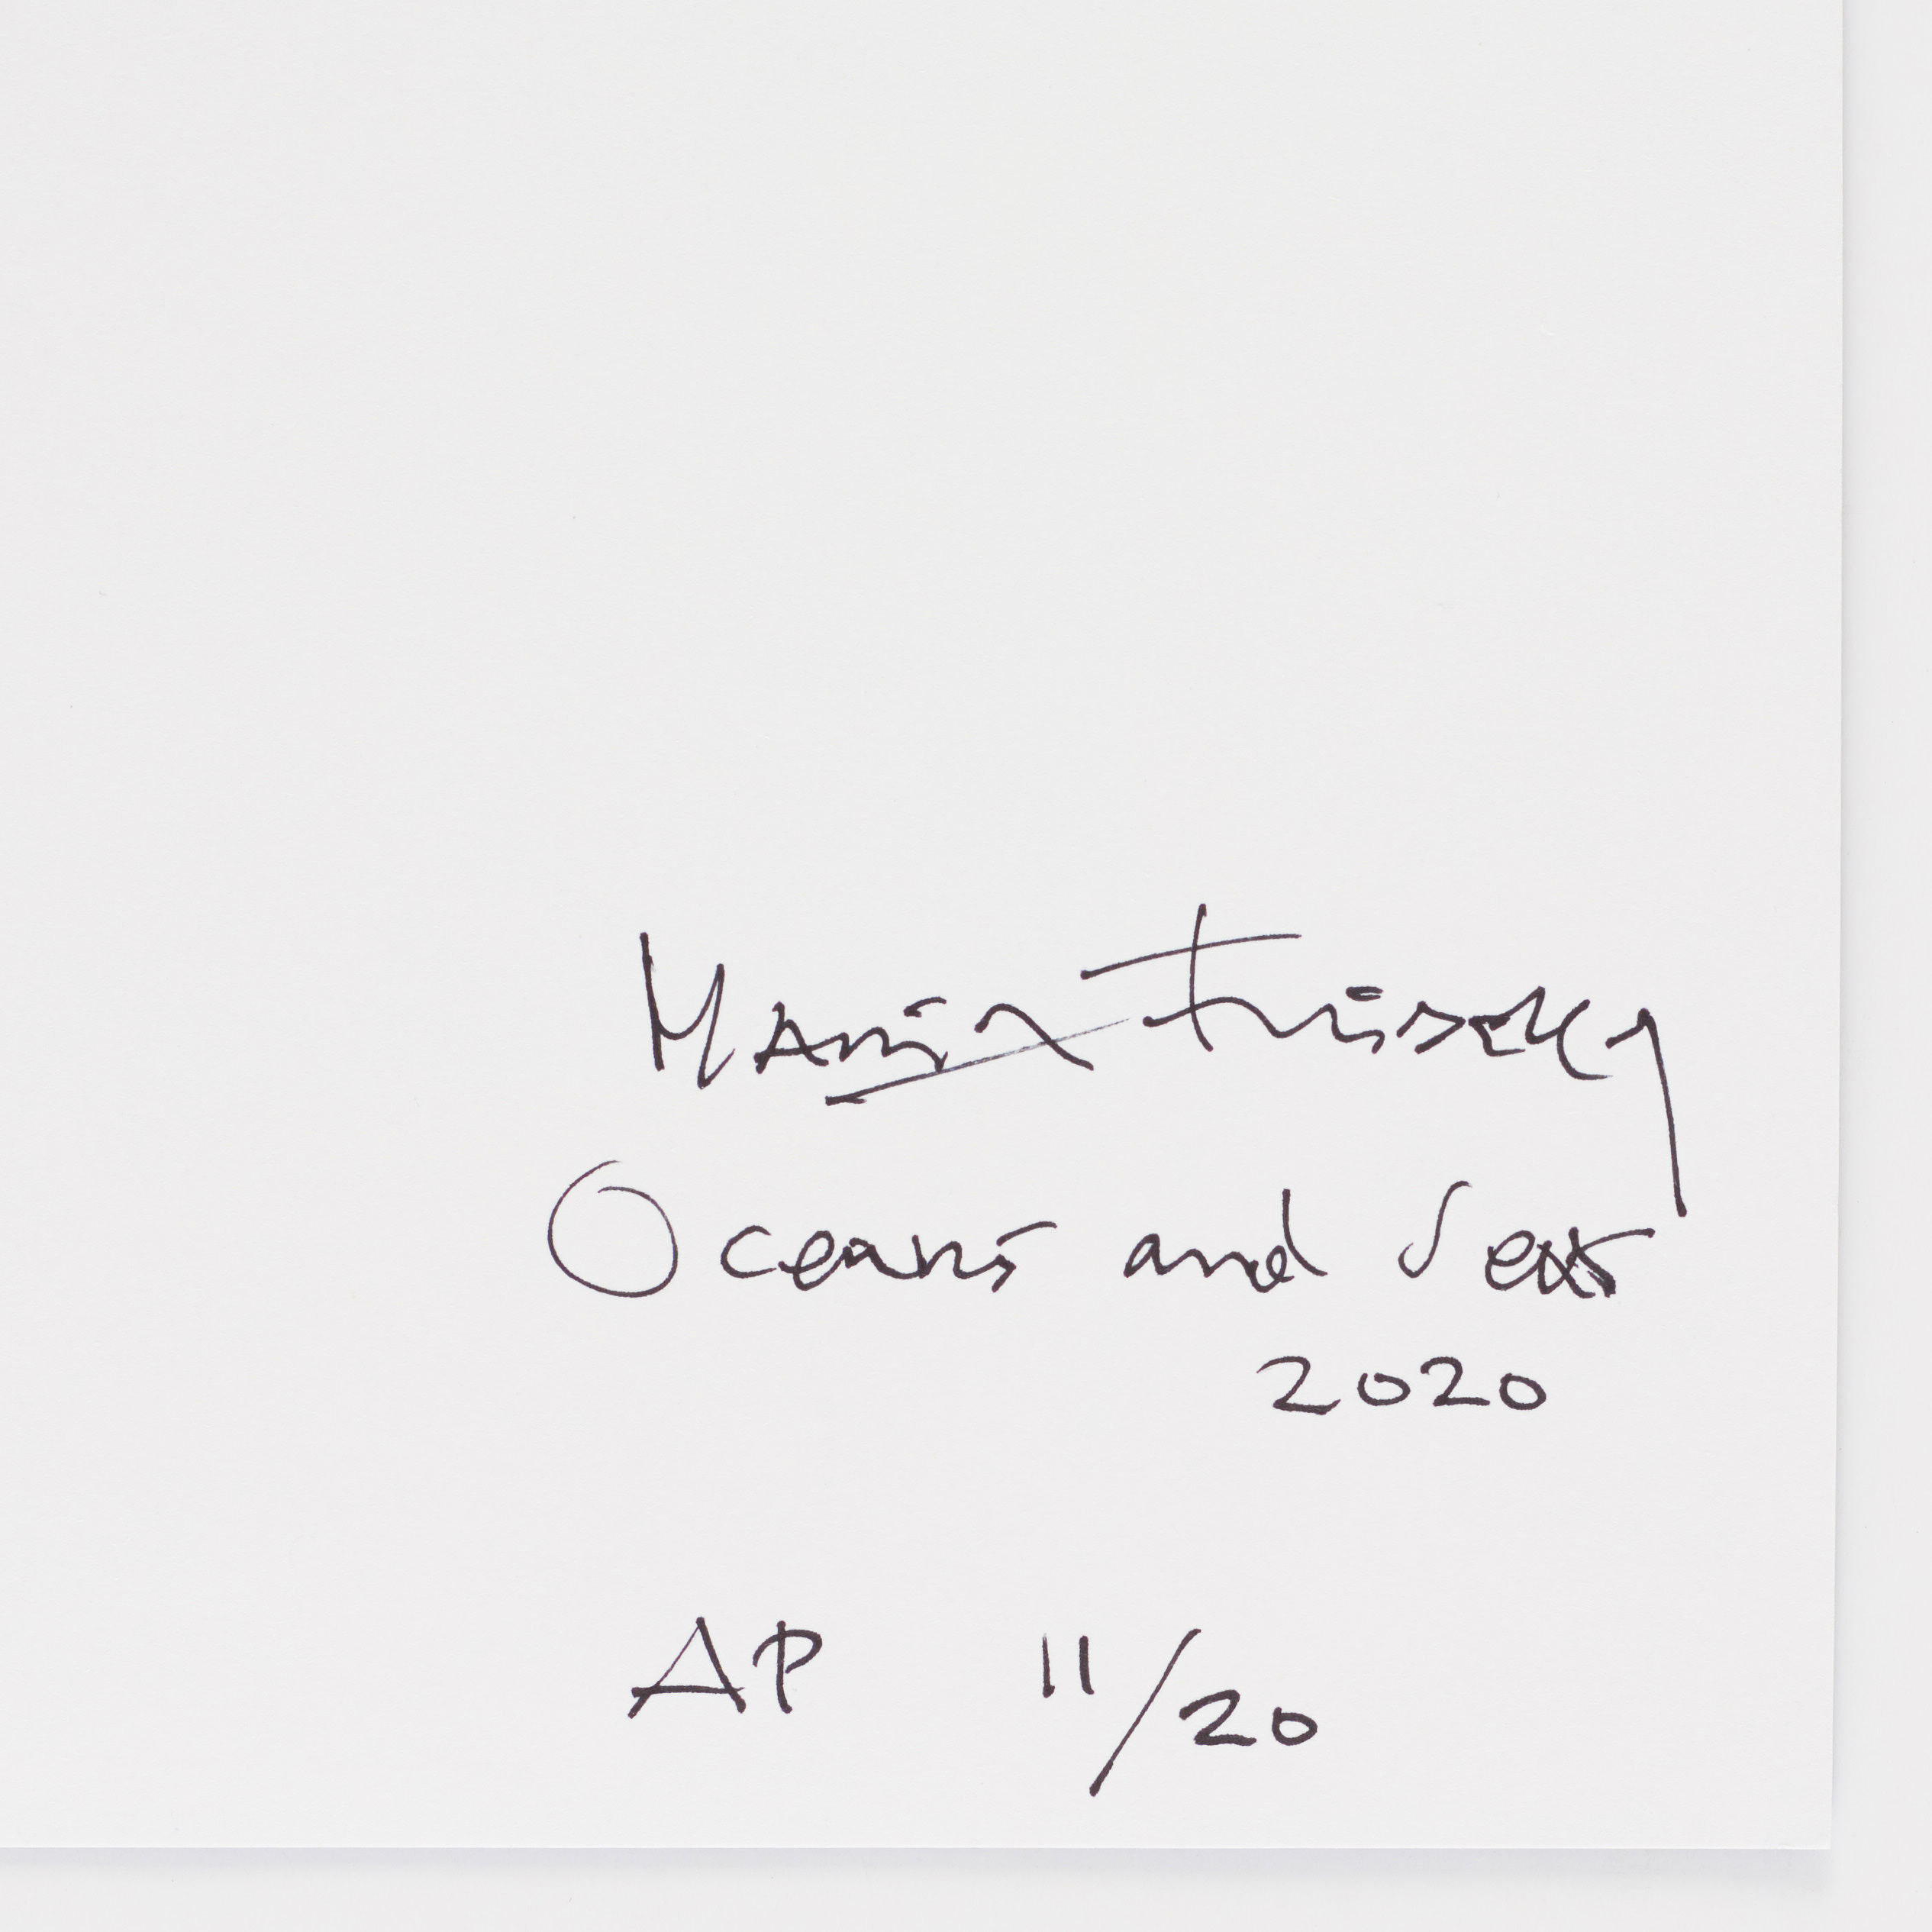 Maria Friberg
Oceans and Seas
2020
AP 11/20